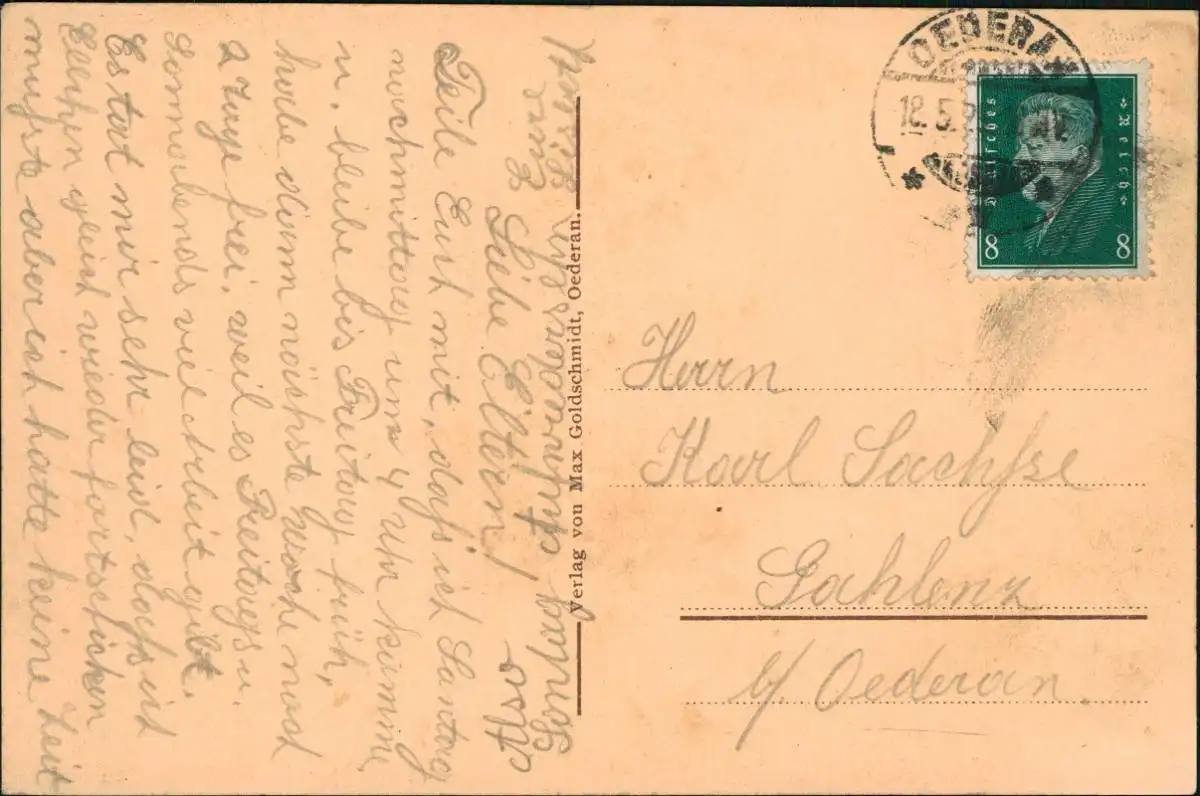 Liebe Eltern!
Teile Euch mit, daß ich Sontag
nachmittag um 4 Uhr komme,
u. bleibe bis Freitag früh,
habe dann nächste Woche noch
2 Tage frei, weil es Freitags u.
Sonnabends viel Arbeit gibt.
Es tat mir sehr leid, daß ich
gleich wieder fortschicken
mußte aber ich hatte keine Zeit
Also
Sontag Aufwiedersehn
Verlag von Max Goldschmidt, Oederan.
OEDERAN
18.5.
Deutsches Reich
8 8
Herrn
Karl Sachße
Gahlenz
b/ Oederan.